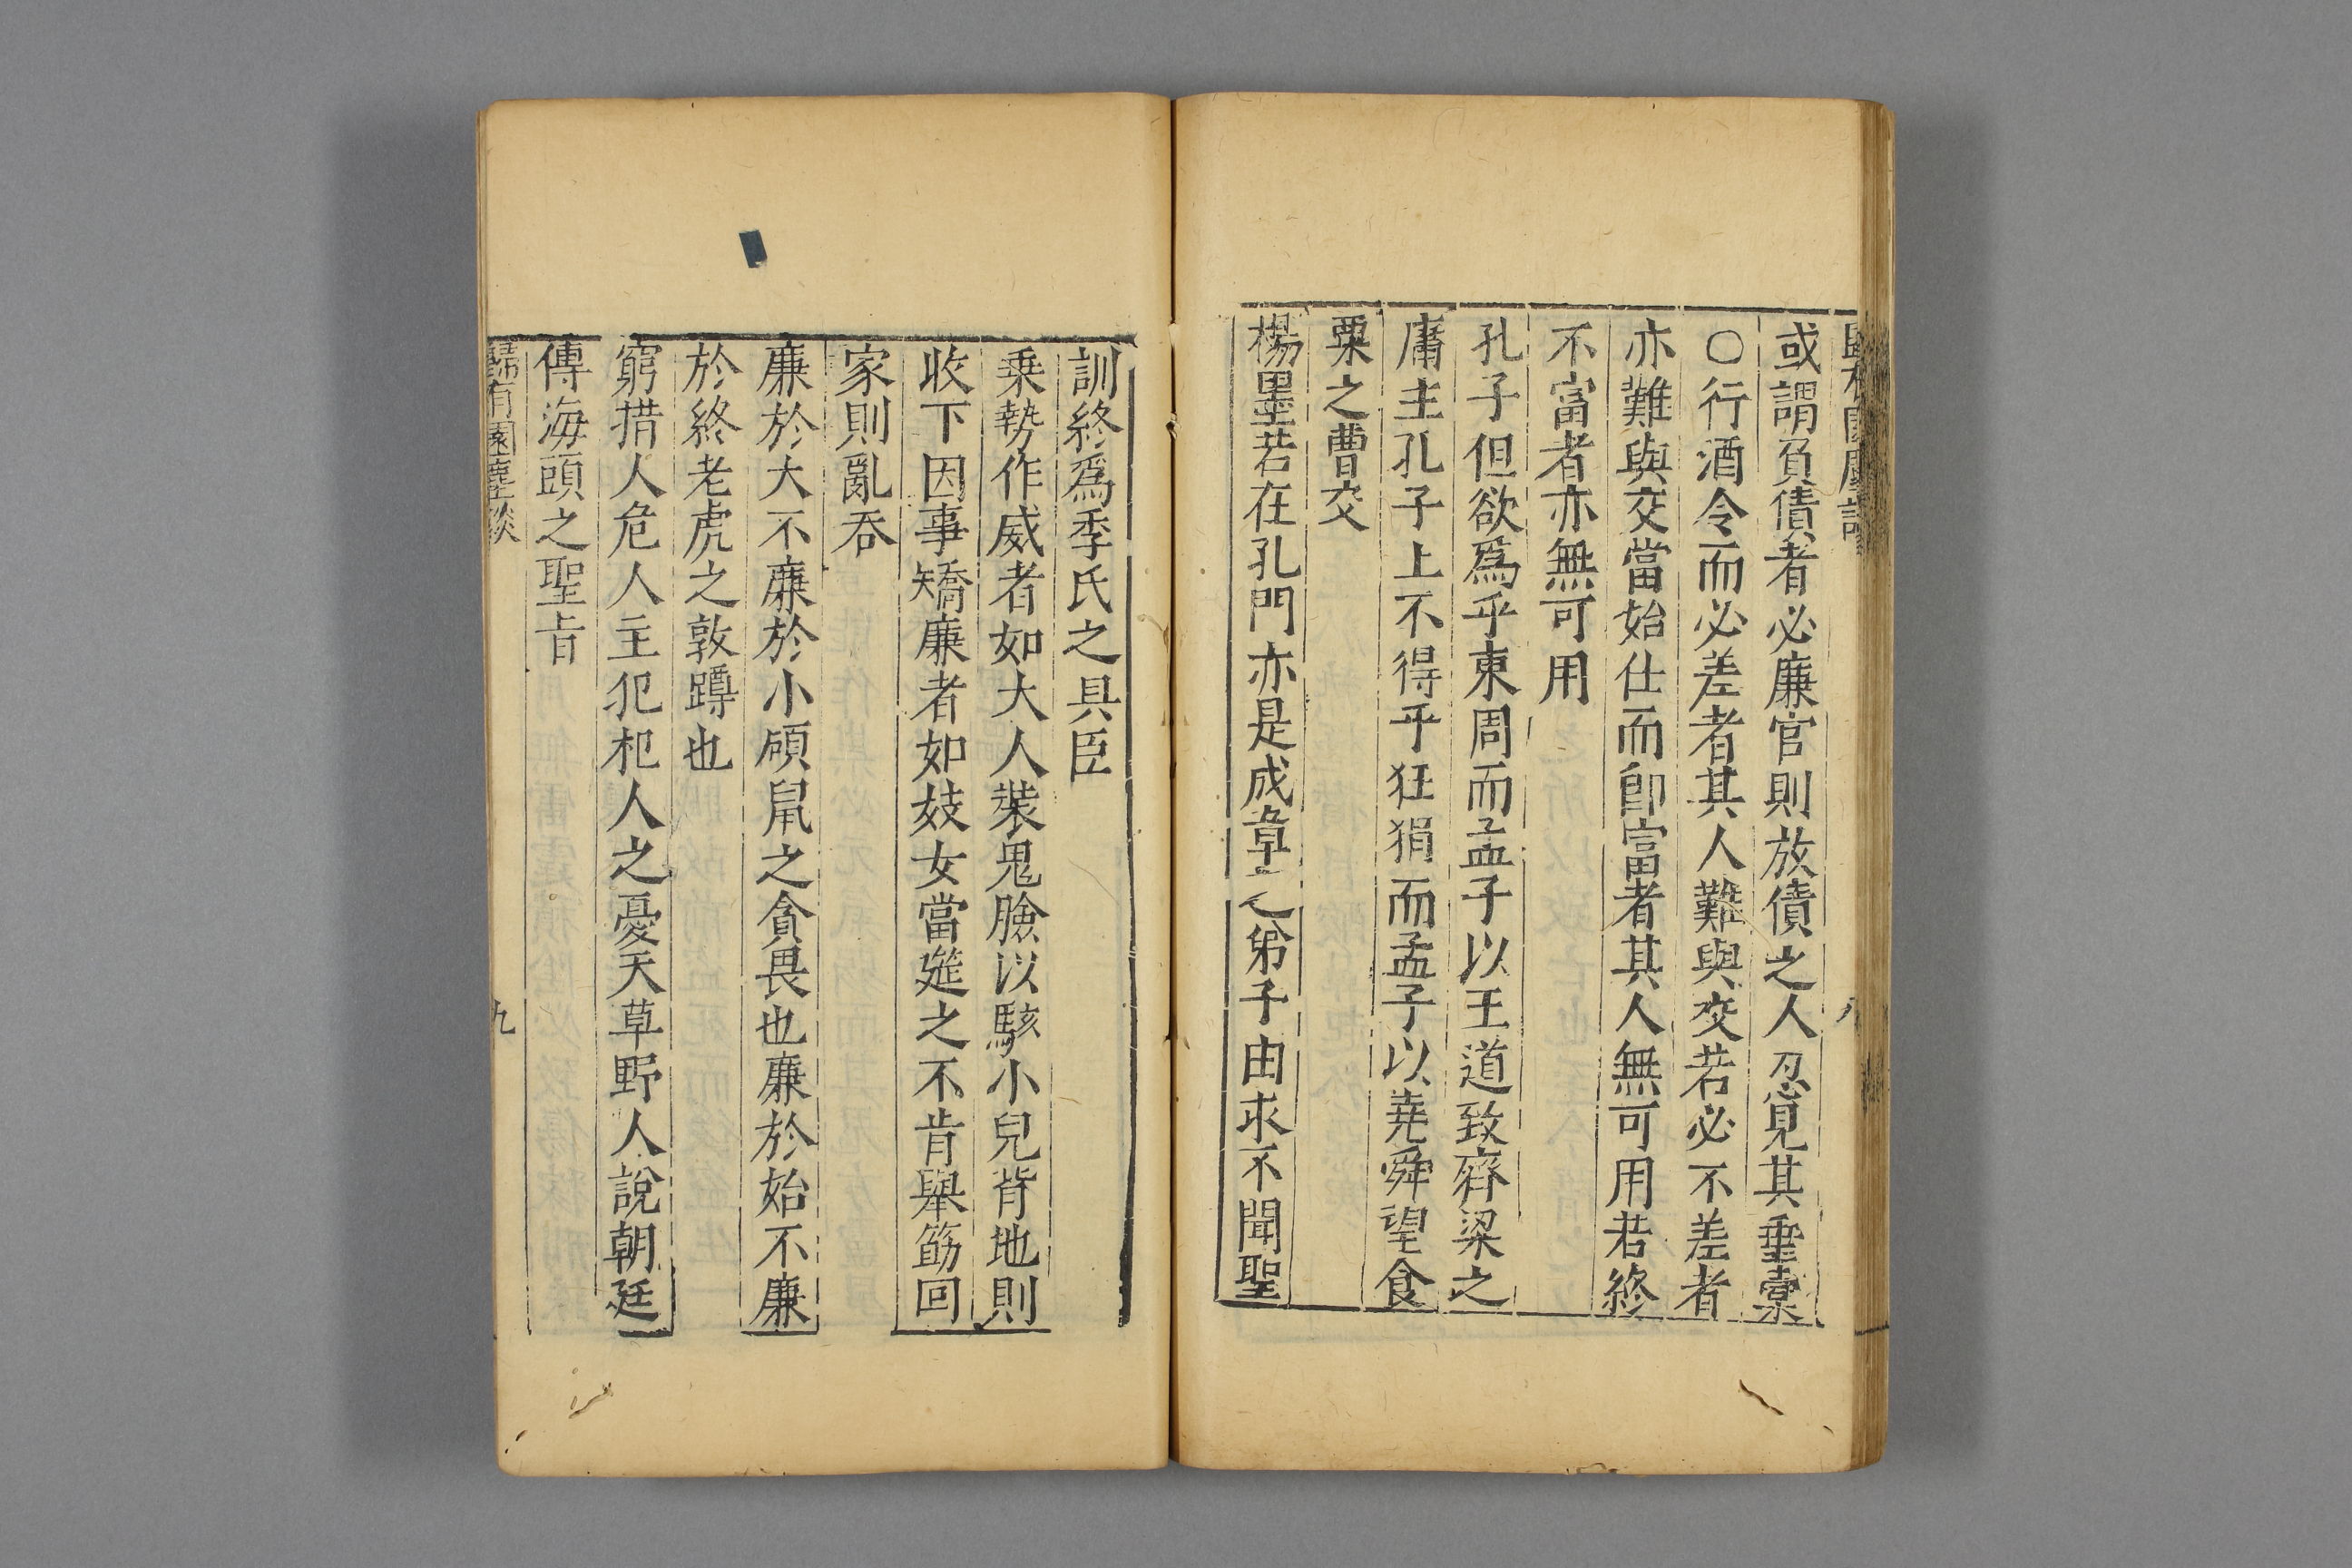 或謂負債者必廉官則放債之人忍覓其垂橐
○行酒令而必差者其人難與交若必不差者
亦難與交當始仕而卽富者其人無可用若終
不富者亦無可用
孔子但欲爲乎東周而孟子以王道致齊梁之
庸主孔子上不得乎狂狷而孟子以堯舜望食
粟之曹交
楊墨若在孔門亦是成章之弟子由求不聞聖
訓終爲季氏之具臣
乗勢作威者如大人裝鬼臉以駭小兒背地則
收下因事矯廉者如妓女當筵之不肯舉筯回
家則亂吞
廉於大不廉於小碩鼠之貪畏也廉於始不廉
於終老虎之敦蹲也
窮措人危人主犯杞人之憂天草野人說朝廷
傳海頭之聖旨
歸有園麈談
九